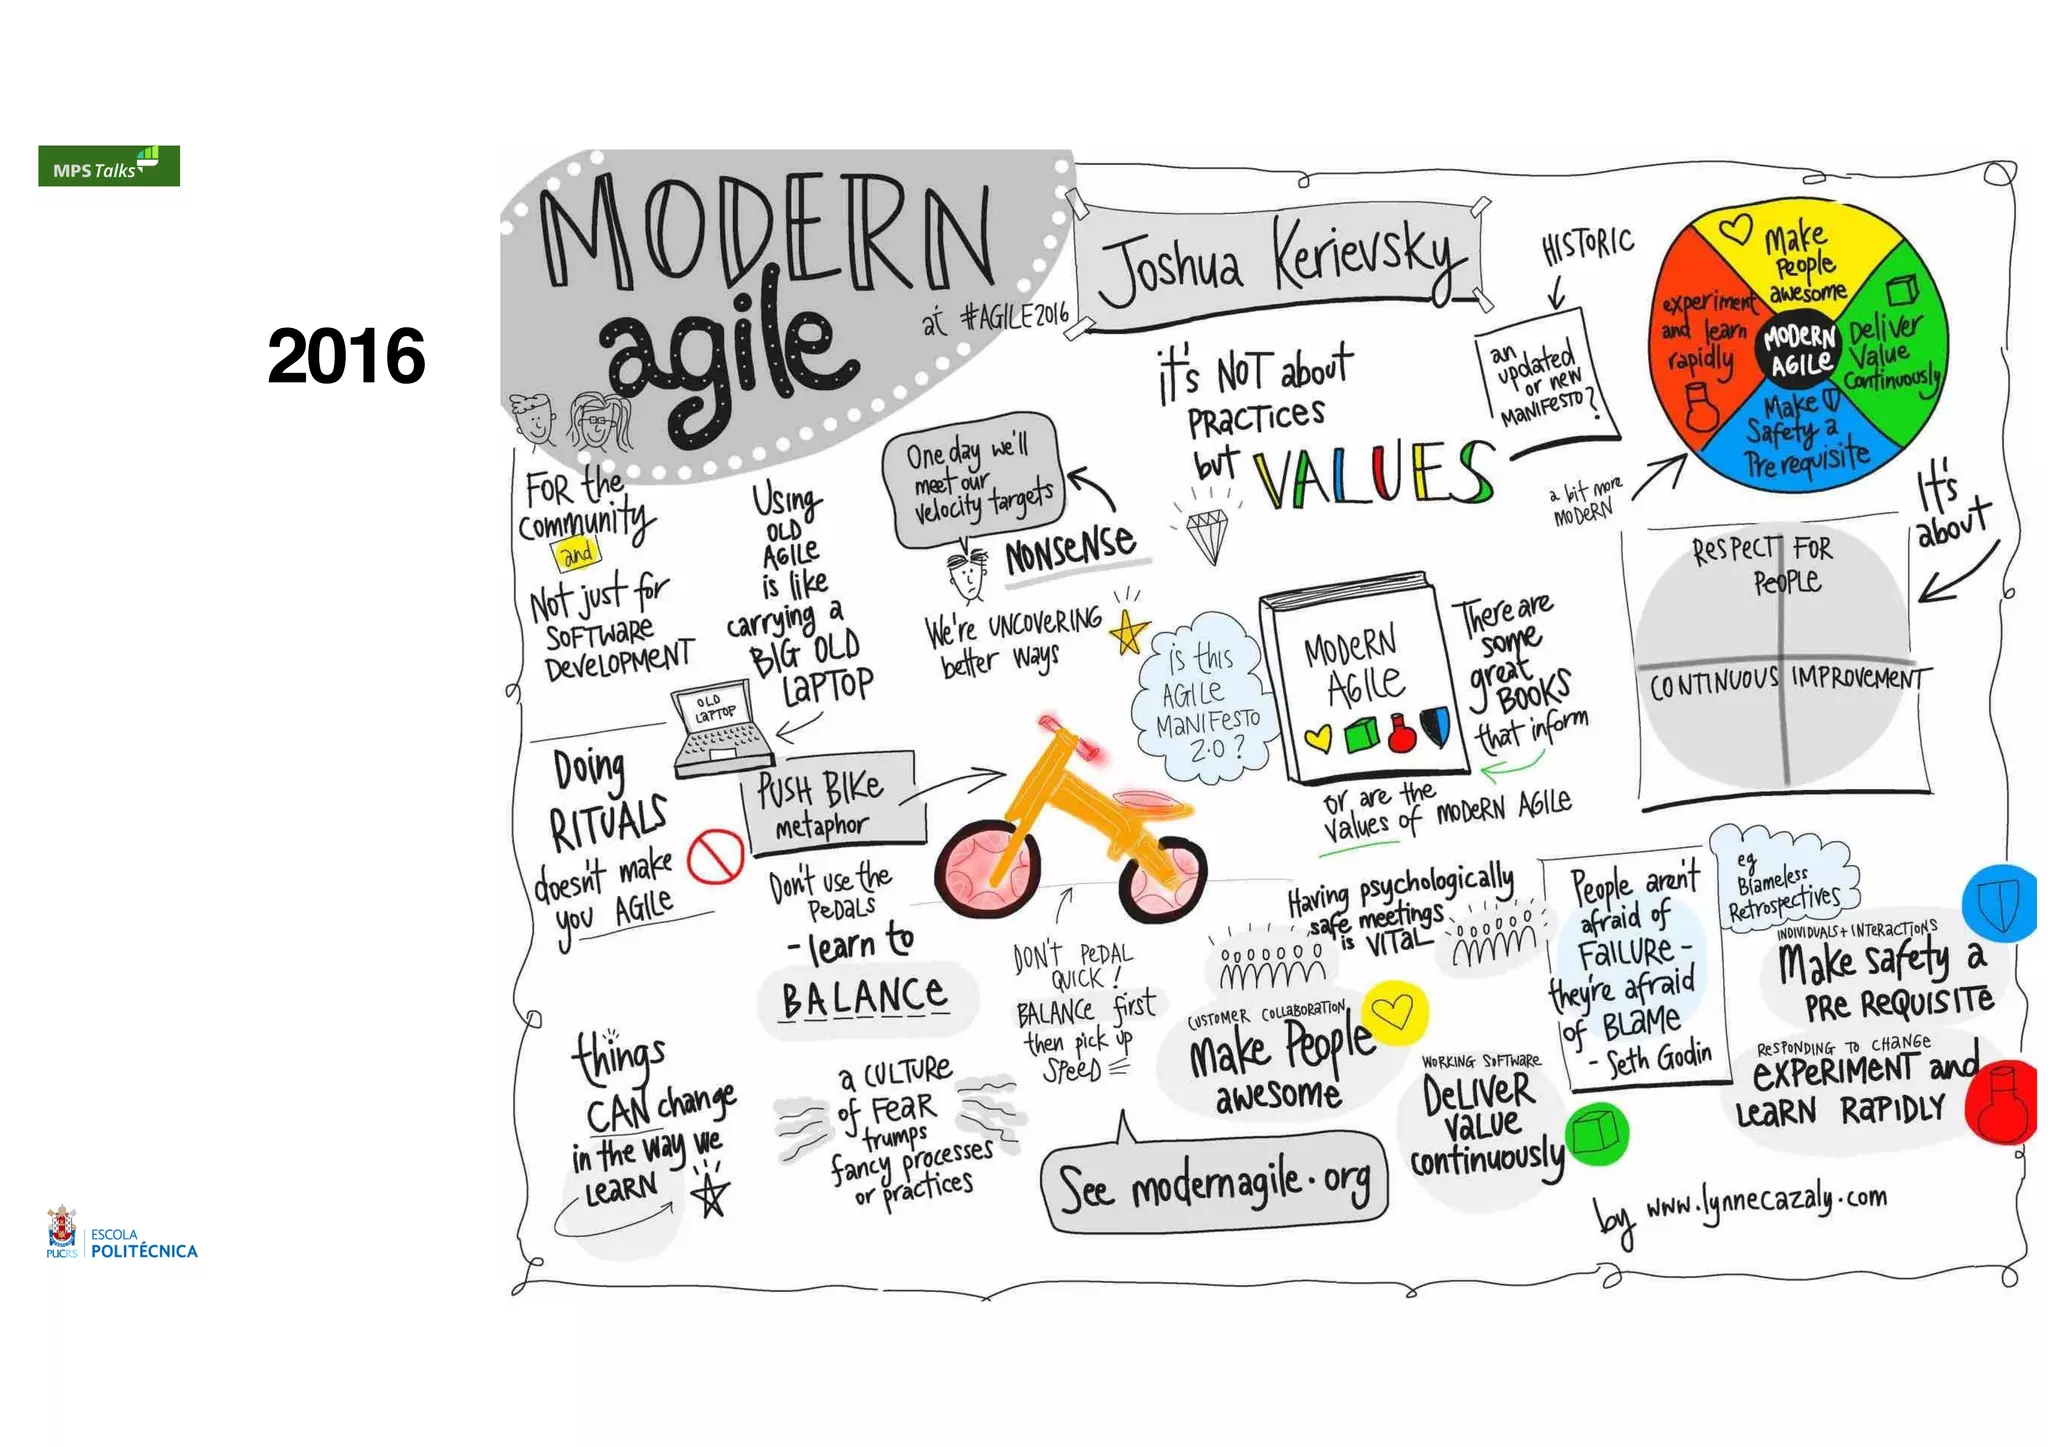 MPS Talks
2016
PUCRS
ESCOLA
POLITÉCNICA
MODERN
agile
at #AGILE2016
Joshua Kerievsky
HISTORIC
an
updated
or new
MANIFESTO?
a bit more
MODERN
Make
People
awesome
experiment
and learn
rapidly
MODERN
AGILE
Deliver
Value
Continuously
Make
Safety a
Prerequisite
it's NOT about
PRACTICES
but VALUES
It's
about
RESPECT FOR
PEOPLE
CONTINUOUS IMPROVEMENT
FOR the
community
and
Not just for
SOFTWARE
DEVELOPMENT
Using
OLD
AGILE
is like
carrying a
BIG OLD
LAPTOP
OLD
LAPTOP
One day we'll
meet our
velocity targets
NONSENSE
We're UNCOVERING
better ways
is this
AGILE
MANIFESTO
2.0?
MODERN
AGILE
There are
some
great
BOOKS
that inform
or are the
values of MODERN AGILE
Doing
RITUALS
doesn't make
you AGILE
PUSH BIKE
metaphor
Don't use the
PEDALS
- learn to
BALANCE
DON'T PEDAL
QUICK!
BALANCE first
then pick up
SPEED
Having psychologically
safe meetings
is VITAL
People aren't
afraid of
FAILURE -
they're afraid
of BLAME
- Seth Godin
eg
Blameless
Retrospectives
INDIVIDUALS + INTERACTIONS
Make safety a
PRE REQUISITE
RESPONDING TO CHANGE
EXPERIMENT and
LEARN RAPIDLY
CUSTOMER COLLABORATION
Make People
awesome
WORKING SOFTWARE
DELIVER
VALUE
continuously
things
CAN change
in the way we
LEARN
a CULTURE
of FEAR
trumps
fancy processes
or practices
See modernagile.org
by www.lynnecazaly.com